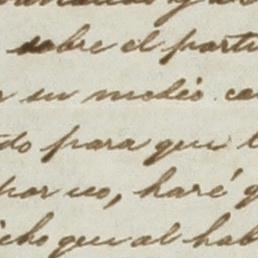 sobre el parti
su medio
do para que
por eso, haré
cho que al hab